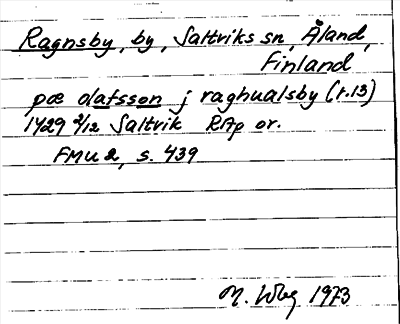 Ragnsby, by, Saltviks sn, Åland,
Finland
pæ olafsson j raghualsby (r.13)
1429 2/12 Saltvik RAp or.
FMU 2, s. 439
M. Wbg 1973